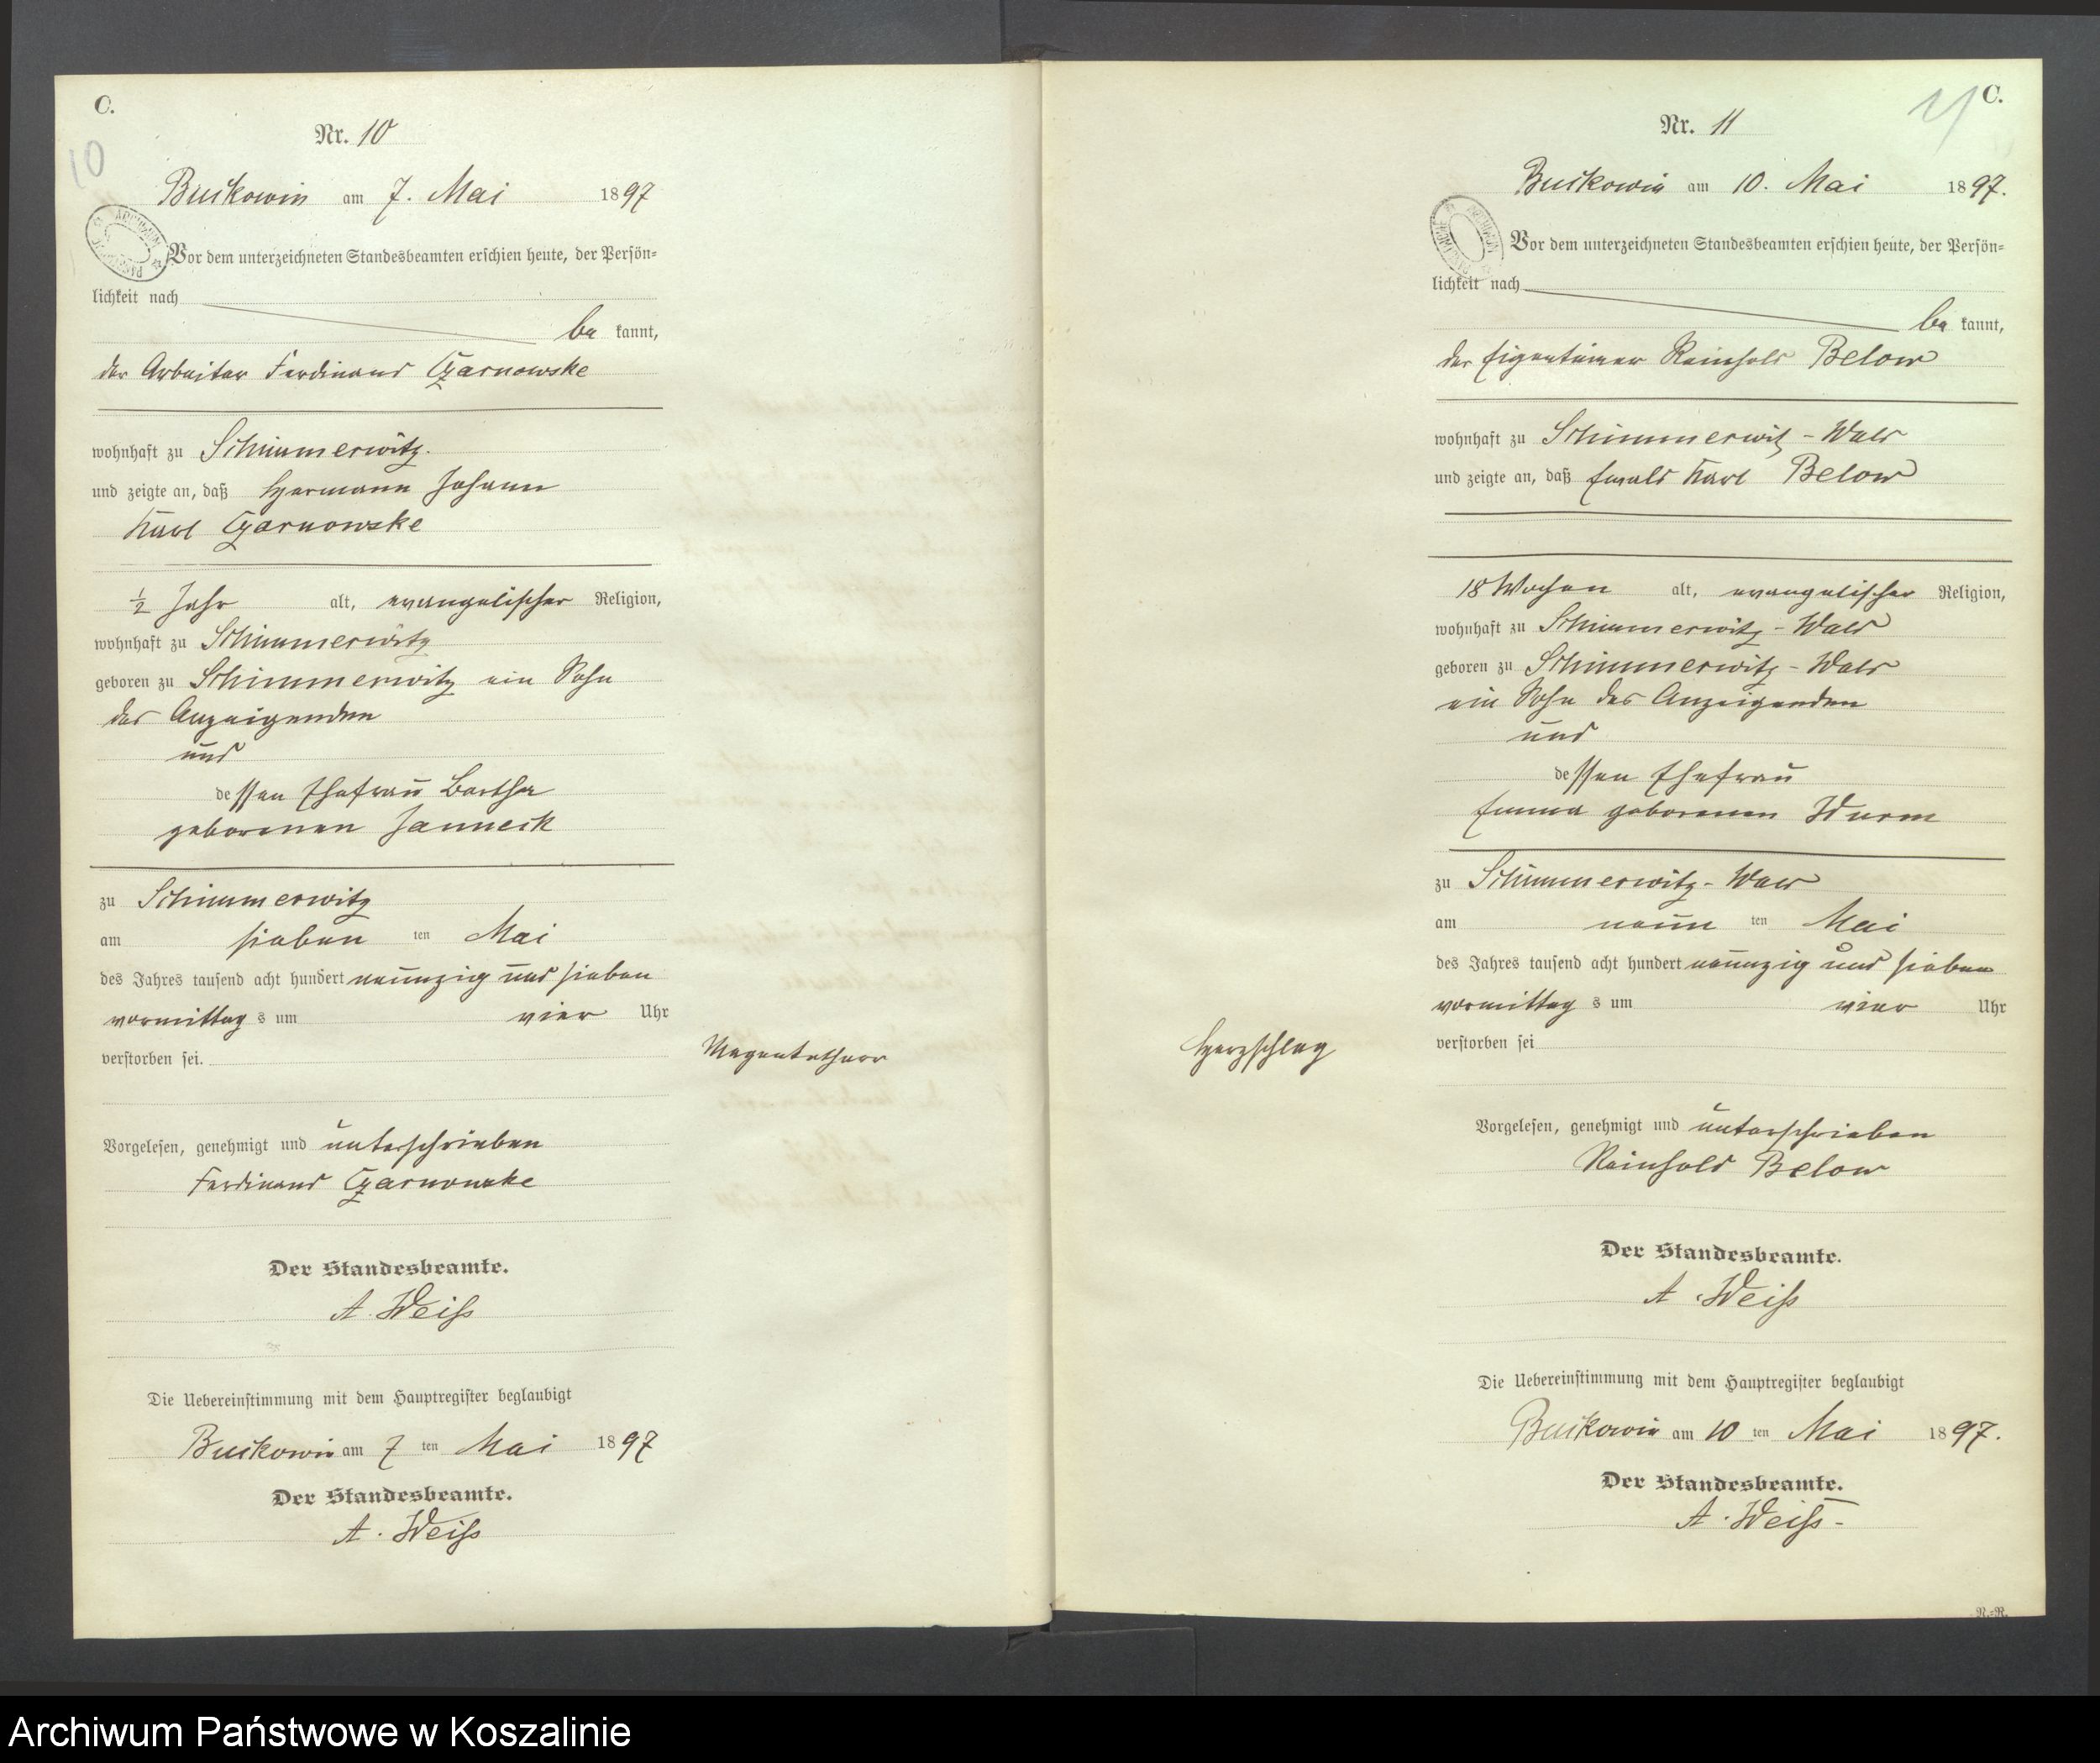 C.
10
Nr. 10
Buckowin am 7. Mai 1897
Vor dem unterzeichneten Standesbeamten erschien heute, der Persön-
lichkeit nach
be kannt,
der Arbeiter Ferdinand Czarnowske
wohnhaft zu Schimmerwitz.
und zeigte an, daß Hermann Johann
Karl Czarnowske
½ Jahr alt, evangelischer Religion,
wohnhaft zu Schimmerwitz
geboren zu Schimmerwitz ein Sohn
des Anzeigenden
und
dessen Ehefrau Bertha
geborenen Janneck
zu Schimmerwitz
am sieben ten Mai
des Jahres tausend acht hundert neunzig und sieben
vormittag s um vier Uhr
verstorben sei.
Magenkatharr
Vorgelesen, genehmigt und unterschrieben
Ferdinand Czarnowske
Der Standesbeamte.
A. Weiß
Die Uebereinstimmung mit dem Hauptregister beglaubigt
Buckowin am 7 ten Mai 1897
Der Standesbeamte.
A. Weiß
C.
11
Nr. 11
Buckowin am 10. Mai 1897.
Vor dem unterzeichneten Standesbeamten erschien heute, der Persön-
lichkeit nach
be kannt,
der Eigentümer Reinhold Below
wohnhaft zu Schimmerwitz - Wald
und zeigte an, daß Ewald Karl Below
18 Wochen alt, evangelischer Religion,
wohnhaft zu Schimmerwitz - Wald
geboren zu Schimmerwitz - Wald
ein Sohn des Anzeigenden
und
dessen Ehefrau
Emma geborenen Wurm
zu Schimmerwitz - Wald
am neun ten Mai
des Jahres tausend acht hundert neunzig und sieben
vormittag s um vier Uhr
verstorben sei
Herzschlag
Vorgelesen, genehmigt und unterschrieben
Reinhold Below
Der Standesbeamte.
A. Weiß
Die Uebereinstimmung mit dem Hauptregister beglaubigt
Buckowin am 10 ten Mai 1897.
Der Standesbeamte.
A. Weiß -
N.-R.
Archiwum Państwowe w Koszalinie